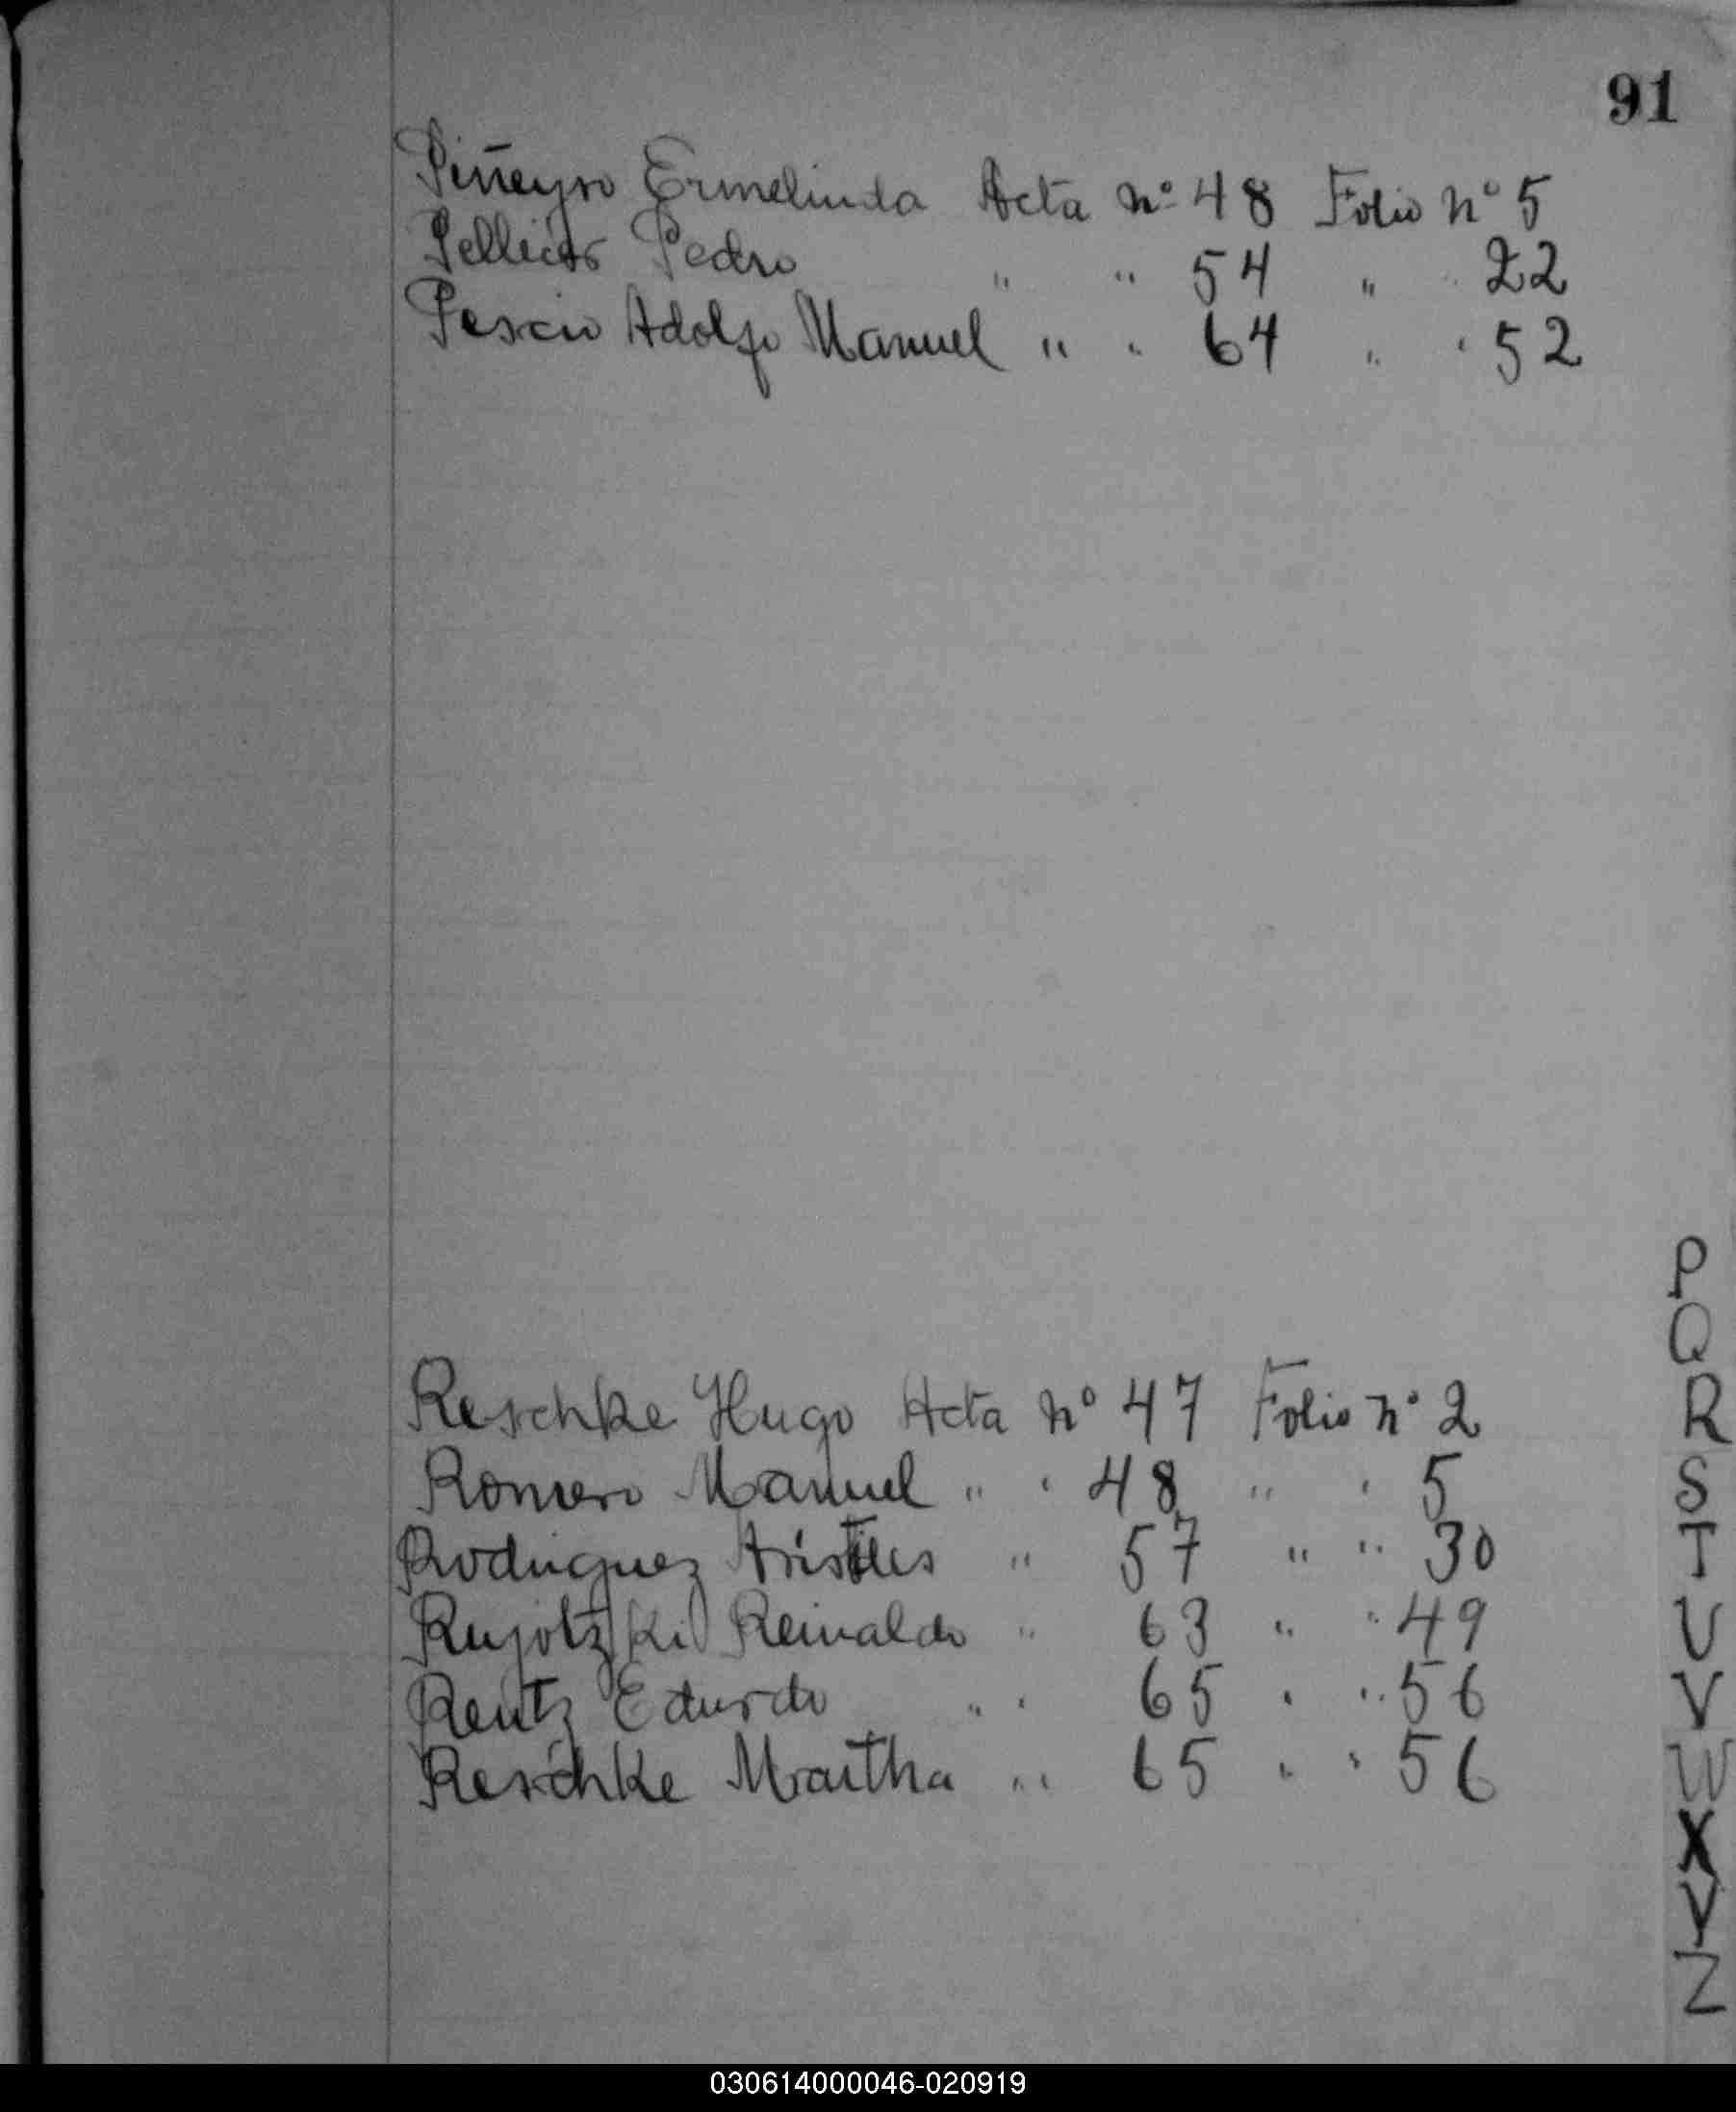 91
Piñeyro Ermelinda Acta nº 48 Folio nº 5
Pedro " " 54 " 22
Pescio Adolfo Manuel " " 64 " " 52
Reschke Hugo Acta nº 47 Folio nº 2
Romero Manuel " " 48 " " 5
Rodriguez " 57 " " 30
Reinaldo " 63 " " 49
Rentz Edurdo " " 65 " " 56
Reschke Martha " " 65 " " 56
P
Q
R
S
T
U
V
W
X
Y
Z
030614000046-020919